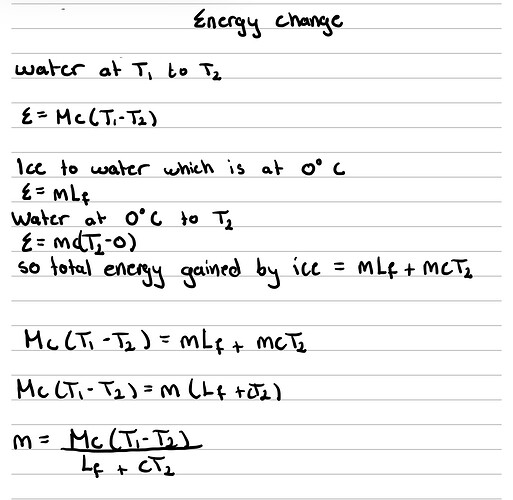 Energy change
water at T₁ to T₂
E = Mc(T₁-T₂)
Ice to water which is at 0° C
E = mLf
Water at 0°C to T₂
E = mc(T₂-0)
so total energy gained by ice = mLf + mcT₂
Mc(T₁-T₂) = mLf + mcT₂
Mc(T₁-T₂) = m(Lf + cT₂)
m = Mc(T₁-T₂)
Lf + cT₂